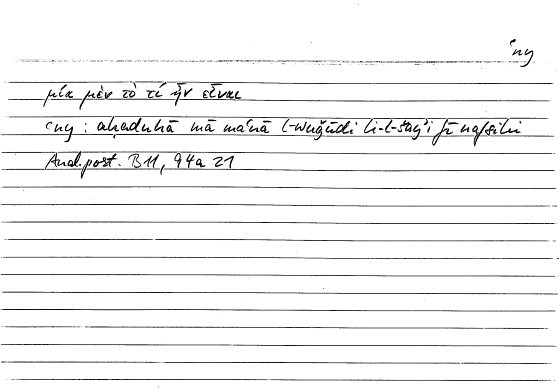 ʿny
μία μὲν τὸ τί ἦν εἶναι
ʿny : aḥaduhā mā maʿnā l-wuǧūdi li-l-šayʾi fī nafsihi
Anal. post. B 11, 94a 21